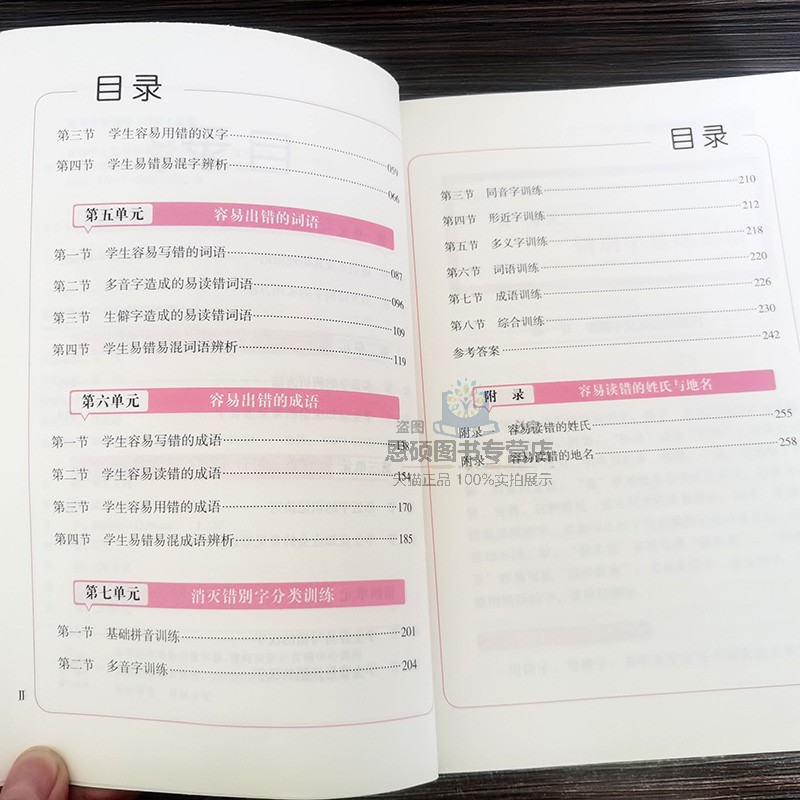 目录
第三节 学生容易用错的汉字 059
第四节 学生易错易混字辨析 066
第五单元 容易出错的词语
第一节 学生容易写错的词语 087
第二节 多音字造成的易读错词语 096
第三节 生僻字造成的易读错词语 109
第四节 学生易错易混词语辨析 119
第六单元 容易出错的成语
第一节 学生容易写错的成语 138
第二节 学生容易读错的成语 154
第三节 学生容易用错的成语 170
第四节 学生易错易混成语辨析 185
第七单元 消灭错别字分类训练
第一节 基础拼音训练 201
第二节 多音字训练 204
II
目录
第三节 同音字训练 210
第四节 形近字训练 212
第五节 多义字训练 218
第六节 词语训练 220
第七节 成语训练 226
第八节 综合训练 230
参考答案 242
附 录 容易读错的姓氏与地名
附录一 容易读错的姓氏 255
附录二 容易读错的地名 258
盗图
恩硕图书专营店
天猫正品 100%实拍展示